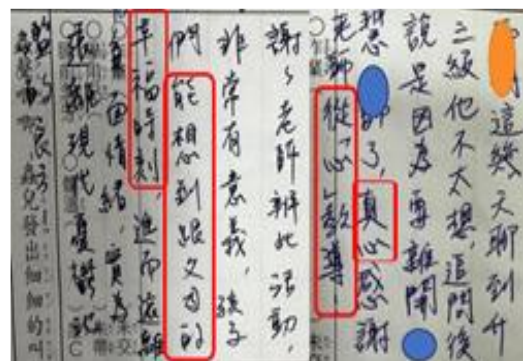 們這幾天聊到升
二級他不太想,追問後
說是因為要離開
想師了,真心感謝
老師從心教導
謝々老師辦此活動,
非常有意義,孩子
們能想到跟父母的
幸福時刻,進而遠離
負面情緒,實為
現代憂鬱
的良方
發出細細的叫